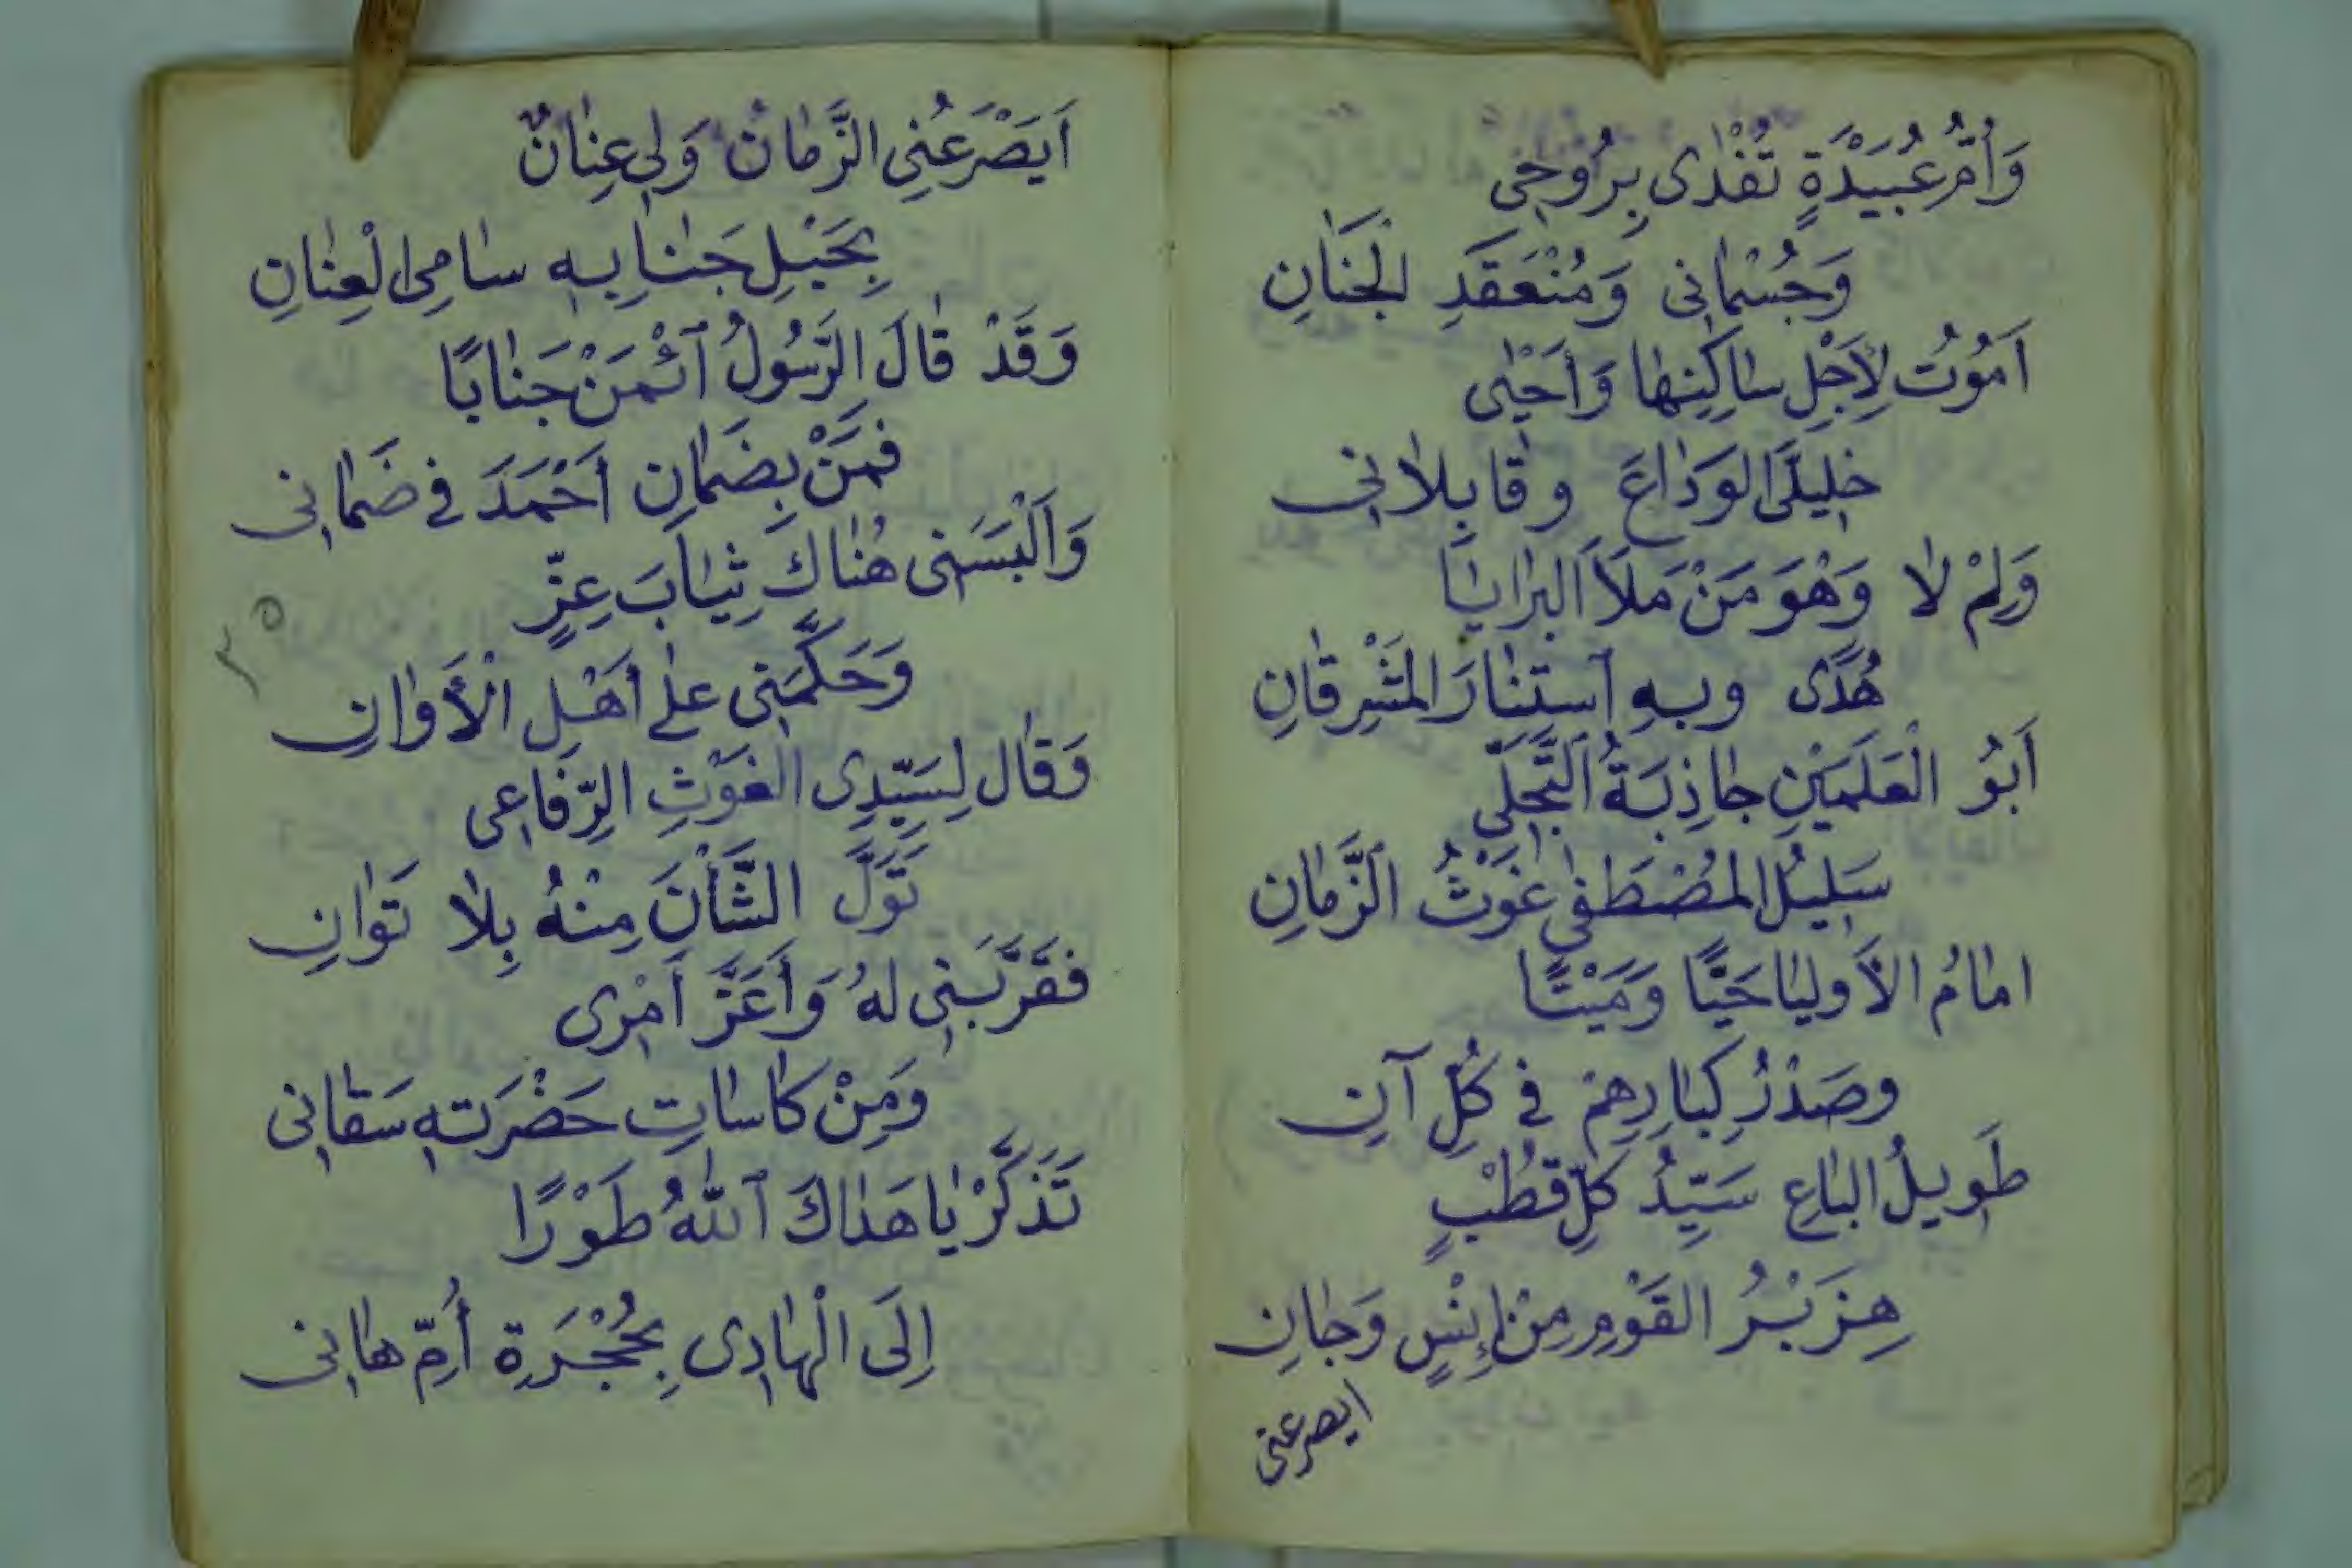 وَأُمُّ عُبَيْدَةٍ تُفْدٰى بِرُوحِى
وَجُسْمَانِى وَمُنْعَقَدِ الْجَنَانِ
اَمُوْتُ لِأَجْلِ سَاكِنِهَا وَأَحْيٰى
خَلِيلَىَّ الوَدَاعَ وقَابِلَانِى
وَلِمْ لَا وَهْوَ مَنْ مَلَأَ البَرَايَا
هُدًى وبِهِ ٱسْتَنَارَ المَشْرِقَانِ
اَبُو الْعَلَمَيْنِ جَاذِبَةُ التَّجَلِّى
سَلِيلُ المُصْطَفٰى غَوْثُ الزَّمَانِ
امَامُ الأَوليَا حَيًّا وَمَيْتًا
وصَدْرُ كِبَارِهِمْ فى كُلِّ آنِ
طَوِيلُ البَاعِ سَيِّدُ كُلِّ قُطْبٍ
هِزَبْرُ القَوْمِ مِنْ إِنْسٍ وَجَانِ
ايصرعنى
اَيَصْرَعُنِى الزَّمَانُ وَلِى عِنَانٌ
بِحَبْلِ جَنَابِهِ سَامِى الْعِنَانِ
وَقَدْ قَالَ الرَّسُولُ ٱئْمَنْ جَنَابًا
فَمَنْ بِضَمَانِ أَحْمَدَ فى ضَمَانِى
وَاَلْبَسَنِى هُنَاكَ ثِيَابَ عِزٍّ
وَحَكَّمَنِى عَلٰى أَهْلِ الْأَوَانِ
٣٥
وَقَالَ لِسَيِّدِى الغَوْثِ الرِّفَاعِى
تَوَلَّ الشَّأْنَ مِنْهُ بِلَا تَوَانِ
فَقَرَّبَنِى لهُ وَأَعَزَّ اَمْرِى
وَمِنْ كَاسَاتِ حَضْرَتِهِ سَقَانِى
تَذَكَّرْ يَا هَدَاكَ ٱللّٰهُ طَوْرًا
اِلَى الْهَادِى بِحُجْرَةِ أُمِّ هَانِى